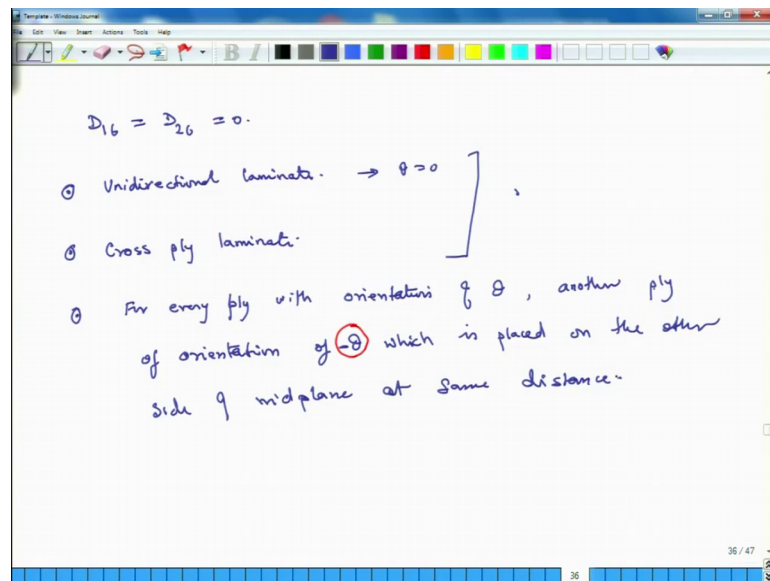 Template - Windows Journal
File Edit View Insert Actions Tools Help
B I
D16 = D26 = 0.
Unidirectional laminate. → θ=0
Cross ply laminate.
For every ply with orientation of θ, another ply
of orientation of -θ which is placed on the other
side of midplane at same distance.
36 / 47
36